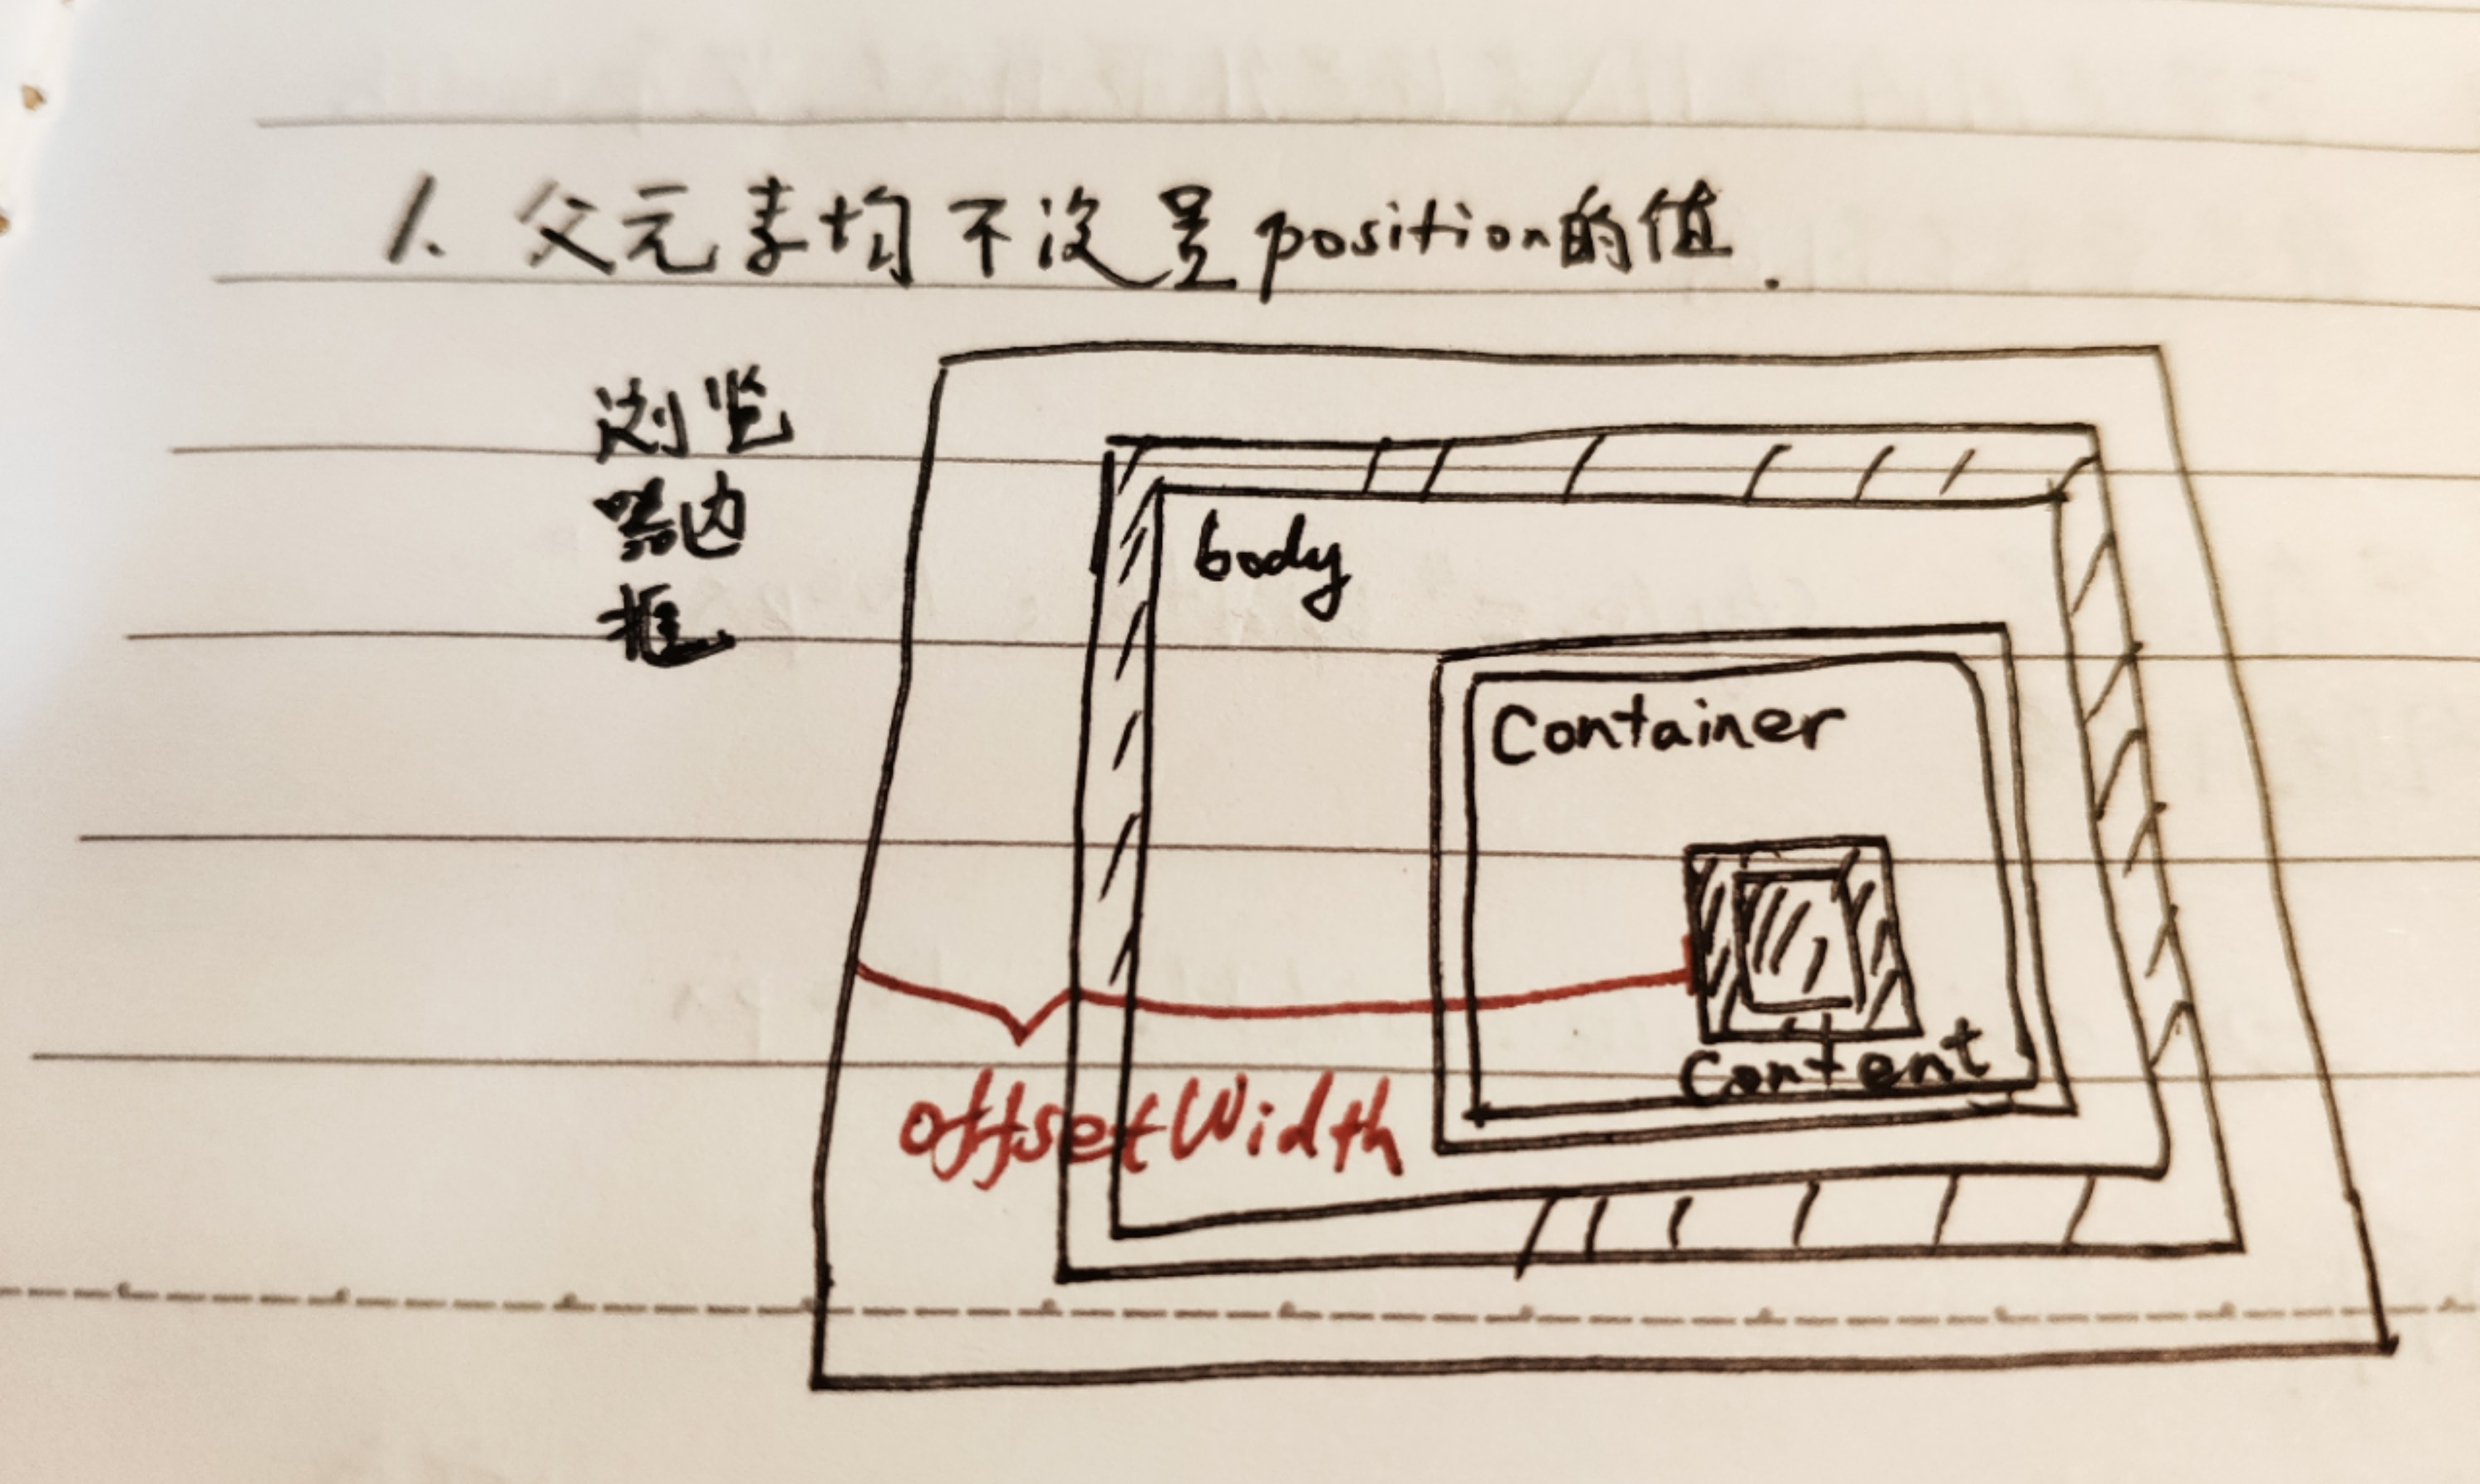 1. 父元素均不设置position的值.
浏览
器边
框
body
Container
Content
offsetWidth